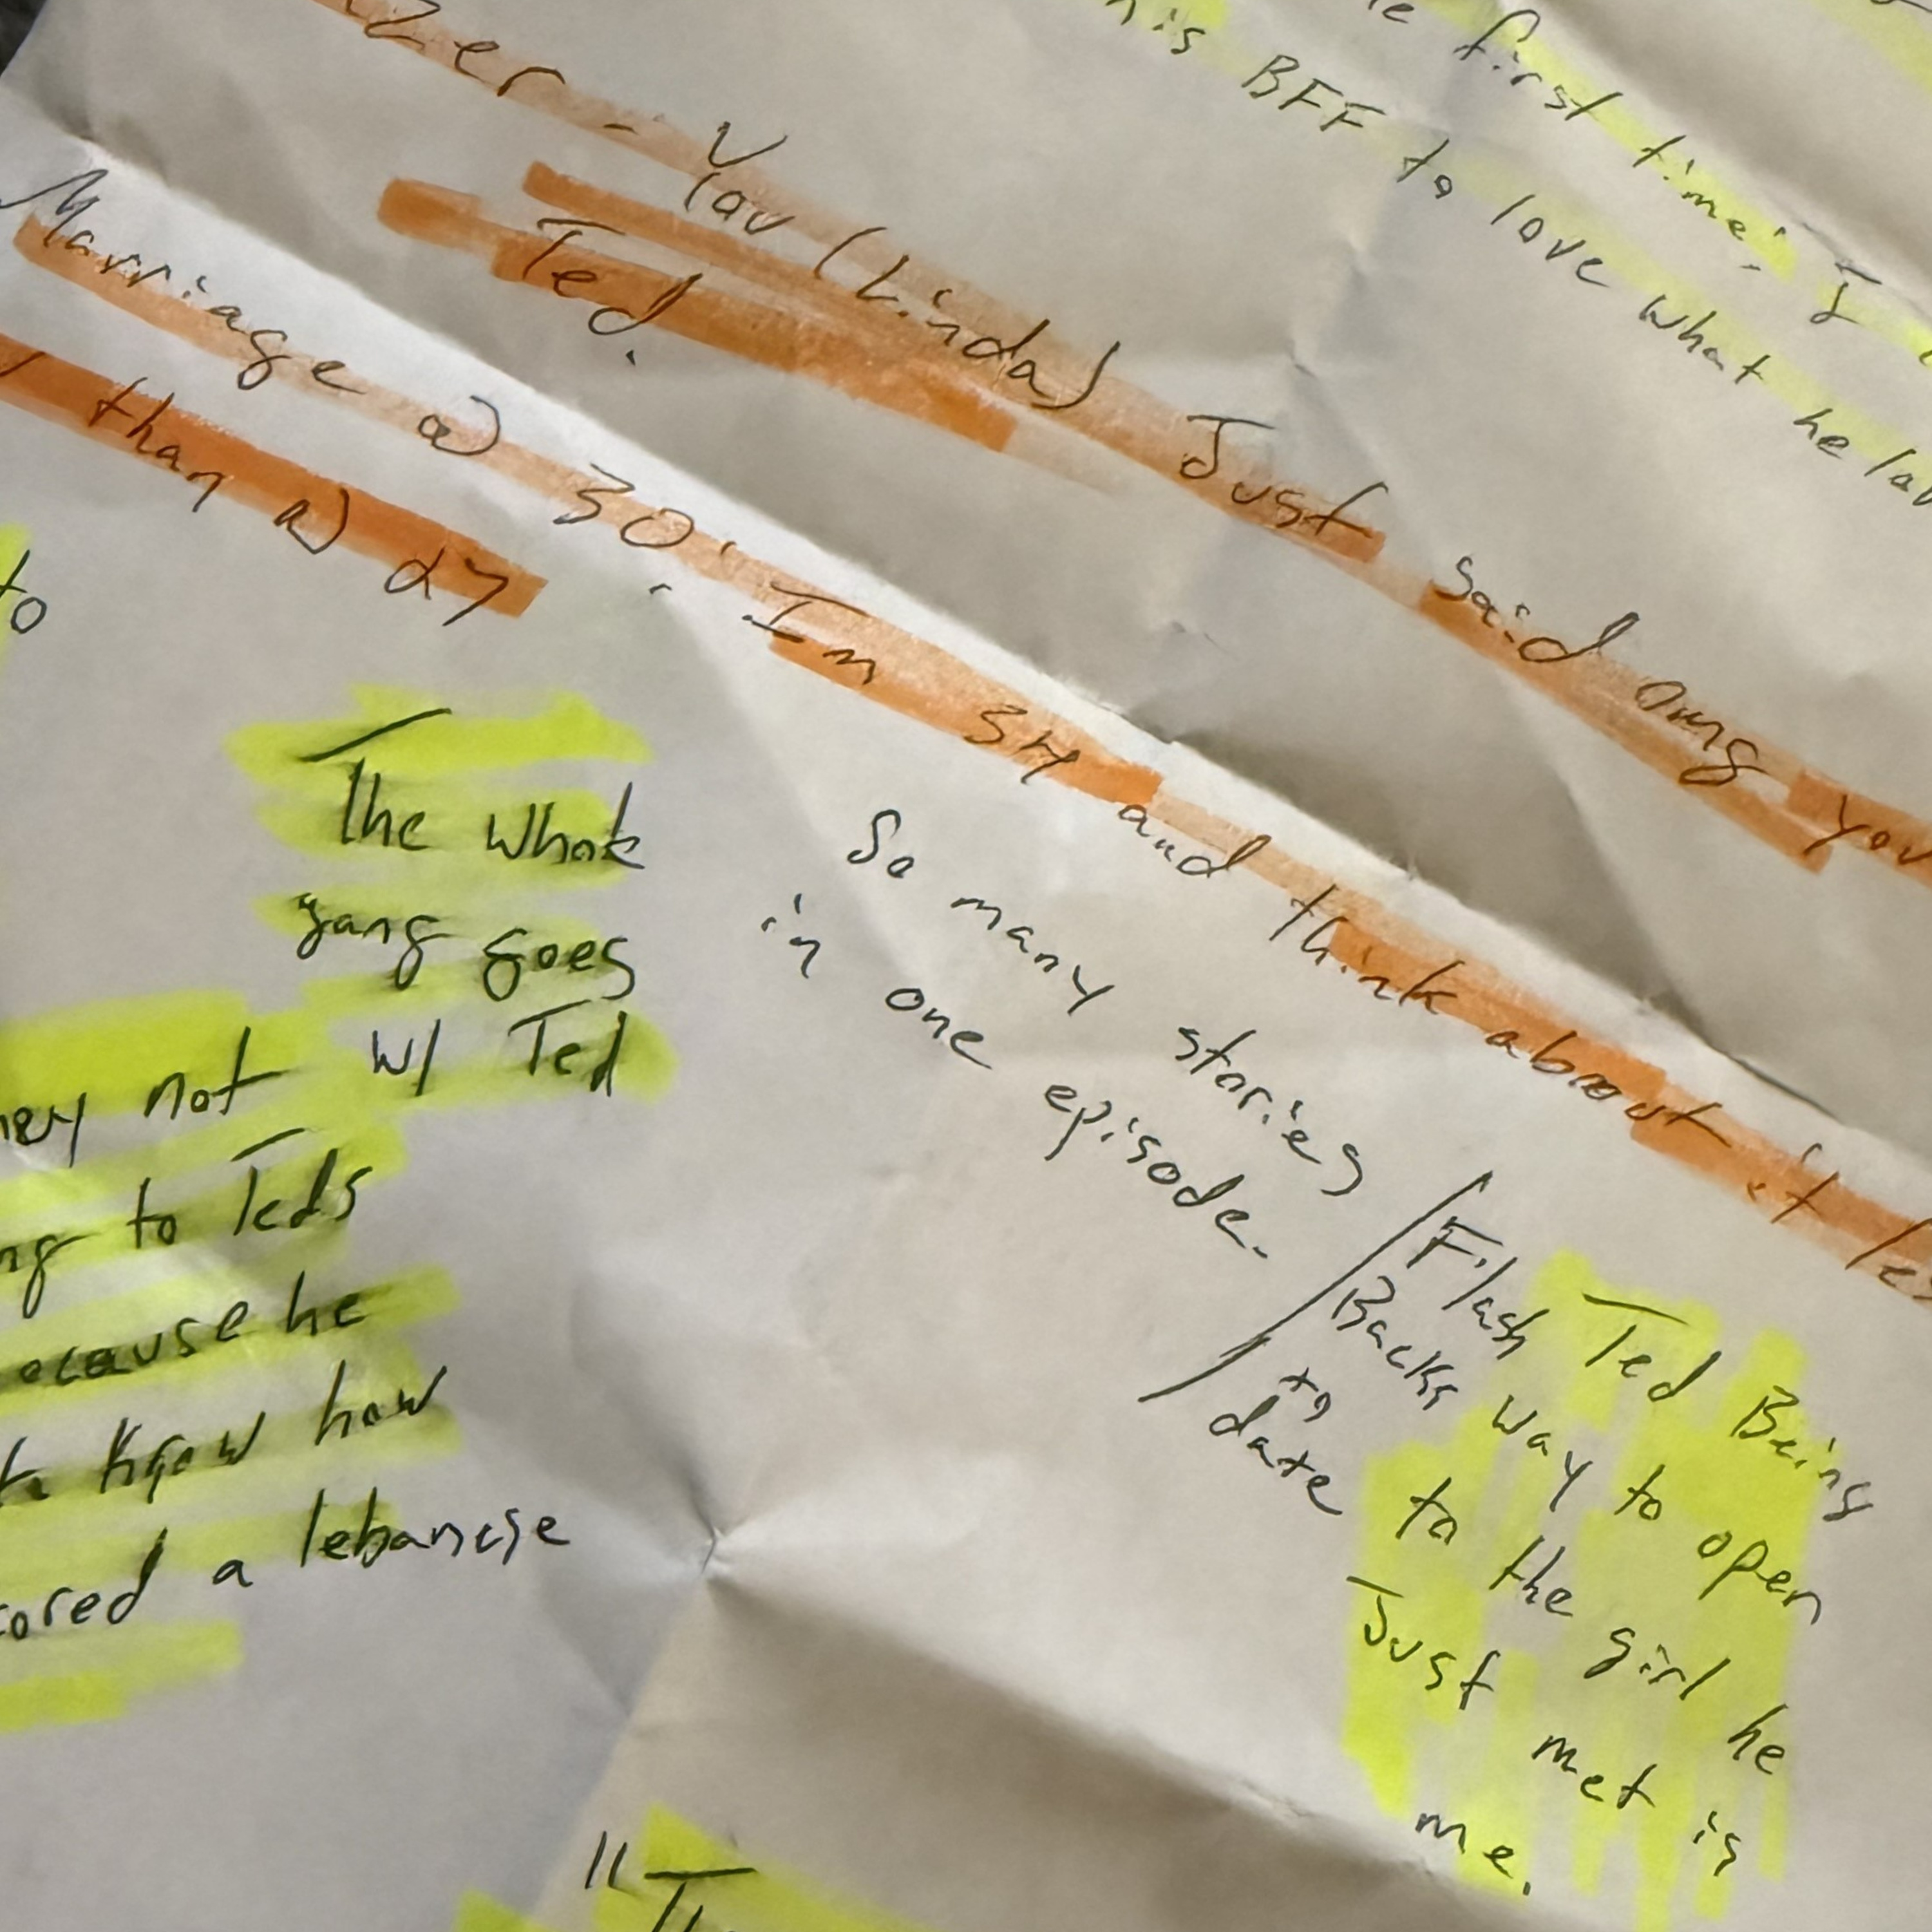 first time. I
his BFF to love what he
You (Linda) Just said omg you
Ted.
Marriage @ 30. Im 34 and think about it
than @ 27
to
The whole
gang goes
not w/ Ted
to Teds
he
know how
a lebanese
So many stories
in one episode.
Flash
Backs
to
date
Ted Being
way to open
to the girl he
Just met is
me.